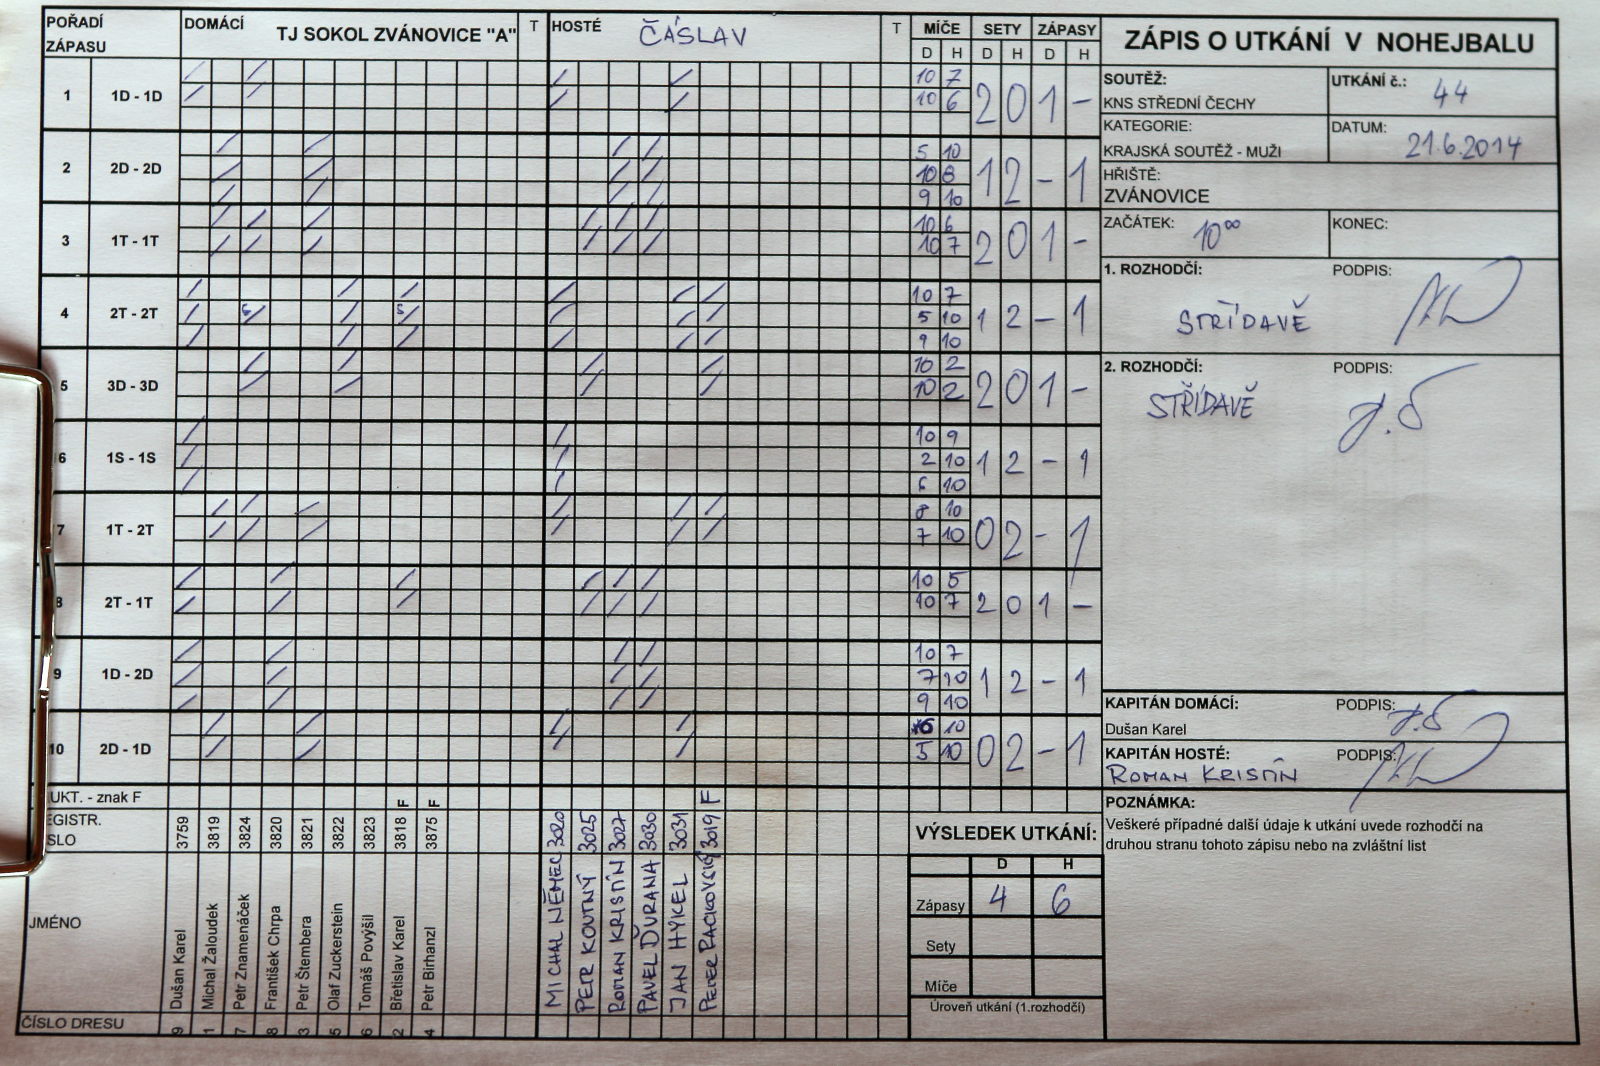 POŘADÍ ZÁPASU DOMÁCÍ TJ SOKOL ZVÁNOVICE "A" T HOSTÉ ČÁSLAV T MÍČE SETY ZÁPASY
D H D H D H
1 1D - 1D 10 7 2 0 1 -
10 6
2 2D - 2D 5 10 1 2 - 1
10 8
9 10
3 1T - 1T 10 6 2 0 1 -
10 7
4 2T - 2T 10 7 1 2 - 1
5 10
9 10
5 3D - 3D 10 2 2 0 1 -
10 2
6 1S - 1S 10 9 1 2 - 1
2 10
6 10
7 1T - 2T 8 10 0 2 - 1
7 10
8 2T - 1T 10 5 2 0 1 -
10 7
9 1D - 2D 10 7 1 2 - 1
7 10
9 10
10 2D - 1D 6 10 0 2 - 1
5 10
UKT. - znak F F F F
EGISTR.
SLO
3759 3819 3824 3820 3821 3822 3823 3818 3875 3020 3025 3027 3030 3031 3019
JMÉNO
Dušan Karel
Michal Žaloudek
Petr Znamenáček
František Chrpa
Petr Štembera
Olaf Zuckerstein
Tomáš Povýšil
Břetislav Karel
Petr Birhanzl
MICHAL NĚMEC
PETR KOUTNÝ
ROMAN KRISTÍN
PAVEL ĎURANA
JAN HÝKEL
ČÍSLO DRESU 9 1 7 8 3 5 6 2 4
VÝSLEDEK UTKÁNÍ:
D H
Zápasy 4 6
Sety
Míče
Úroveň utkání (1.rozhodčí)
ZÁPIS O UTKÁNÍ V NOHEJBALU
SOUTĚŽ:
KNS STŘEDNÍ ČECHY
UTKÁNÍ č.: 44
KATEGORIE:
KRAJSKÁ SOUTĚŽ - MUŽI
DATUM: 21.6.2014
HŘIŠTĚ:
ZVÁNOVICE
ZAČÁTEK: 10⁰⁰ KONEC:
1. ROZHODČÍ: PODPIS:
STŘÍDAVĚ
2. ROZHODČÍ: PODPIS:
STŘÍDAVĚ
KAPITÁN DOMÁCÍ: PODPIS:
Dušan Karel
KAPITÁN HOSTÉ: PODPIS:
ROMAN KRISTÍN
POZNÁMKA:
Veškeré případné další údaje k utkání uvede rozhodčí na
druhou stranu tohoto zápisu nebo na zvláštní list